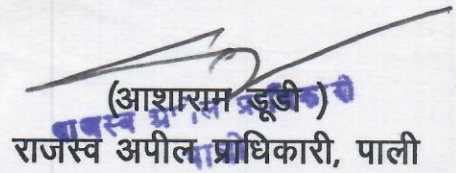 (आशाराम डूडी)
राजस्व अपील प्राधिकारी
राजस्व अपील प्राधिकारी, पाली
पाली